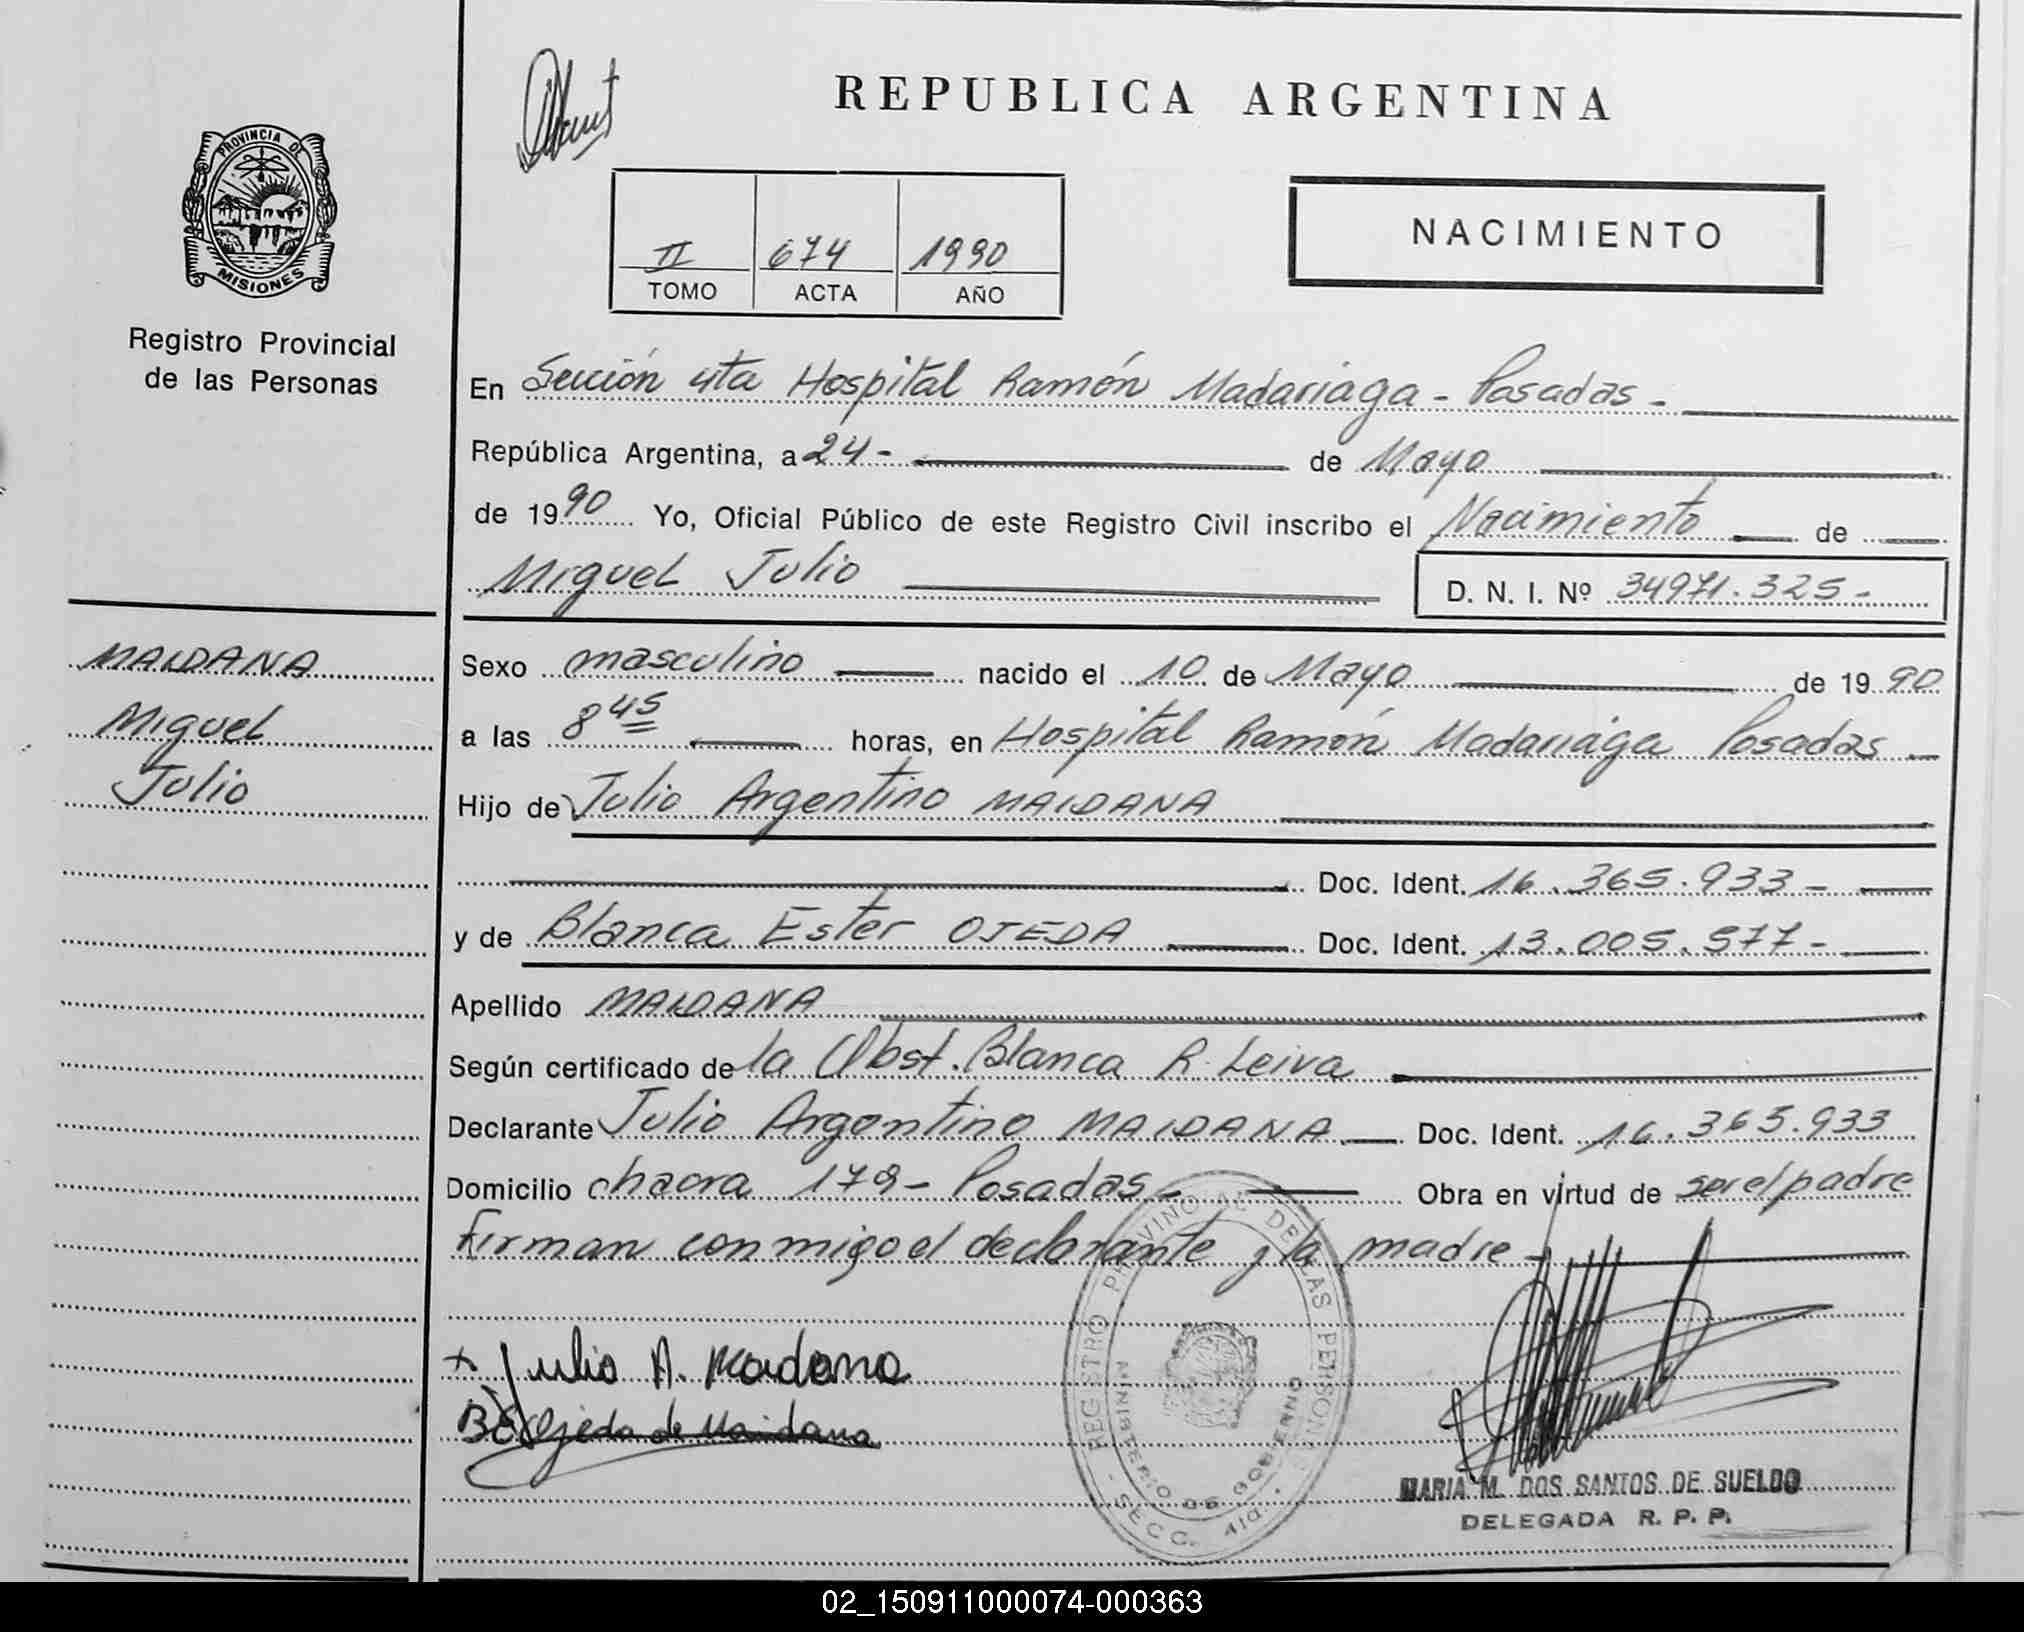 REPUBLICA ARGENTINA
PROVINCIA DE
MISIONES
Registro Provincial
de las Personas
II 674 1990
TOMO ACTA AÑO
NACIMIENTO
En Sección 4ta Hospital Ramón Madariaga - Posadas -
República Argentina, a 24 - de Mayo
de 1990 Yo, Oficial Público de este Registro Civil inscribo el Nacimiento de
Miguel Julio D. N. I. Nº 34971.325 -
MAIDANA
Miguel
Julio
Sexo masculino nacido el 10 de Mayo de 1990
a las 8 45 horas, en Hospital Ramón Madariaga Posadas -
Hijo de Julio Argentino MAIDANA
Doc. Ident. 16.365.933 -
y de Blanca Ester OJEDA Doc. Ident. 13.005.577 -
Apellido MAIDANA
Según certificado de la Obst. Blanca R. Leiva
Declarante Julio Argentino MAIDANA Doc. Ident. 16.365.933
Domicilio chacra 179 - Posadas - Obra en virtud de ser el padre
Firman conmigo el declarante y la madre -
+ Julio A. Maidana
B E Ojeda de Maidana
REGISTRO PROVINCIAL DE LAS PERSONAS
MINISTERIO DE GOBIERNO
- SECC. 4ta. -
MARIA M. DOS SANTOS DE SUELDO
DELEGADA R. P. P.
02_150911000074-000363